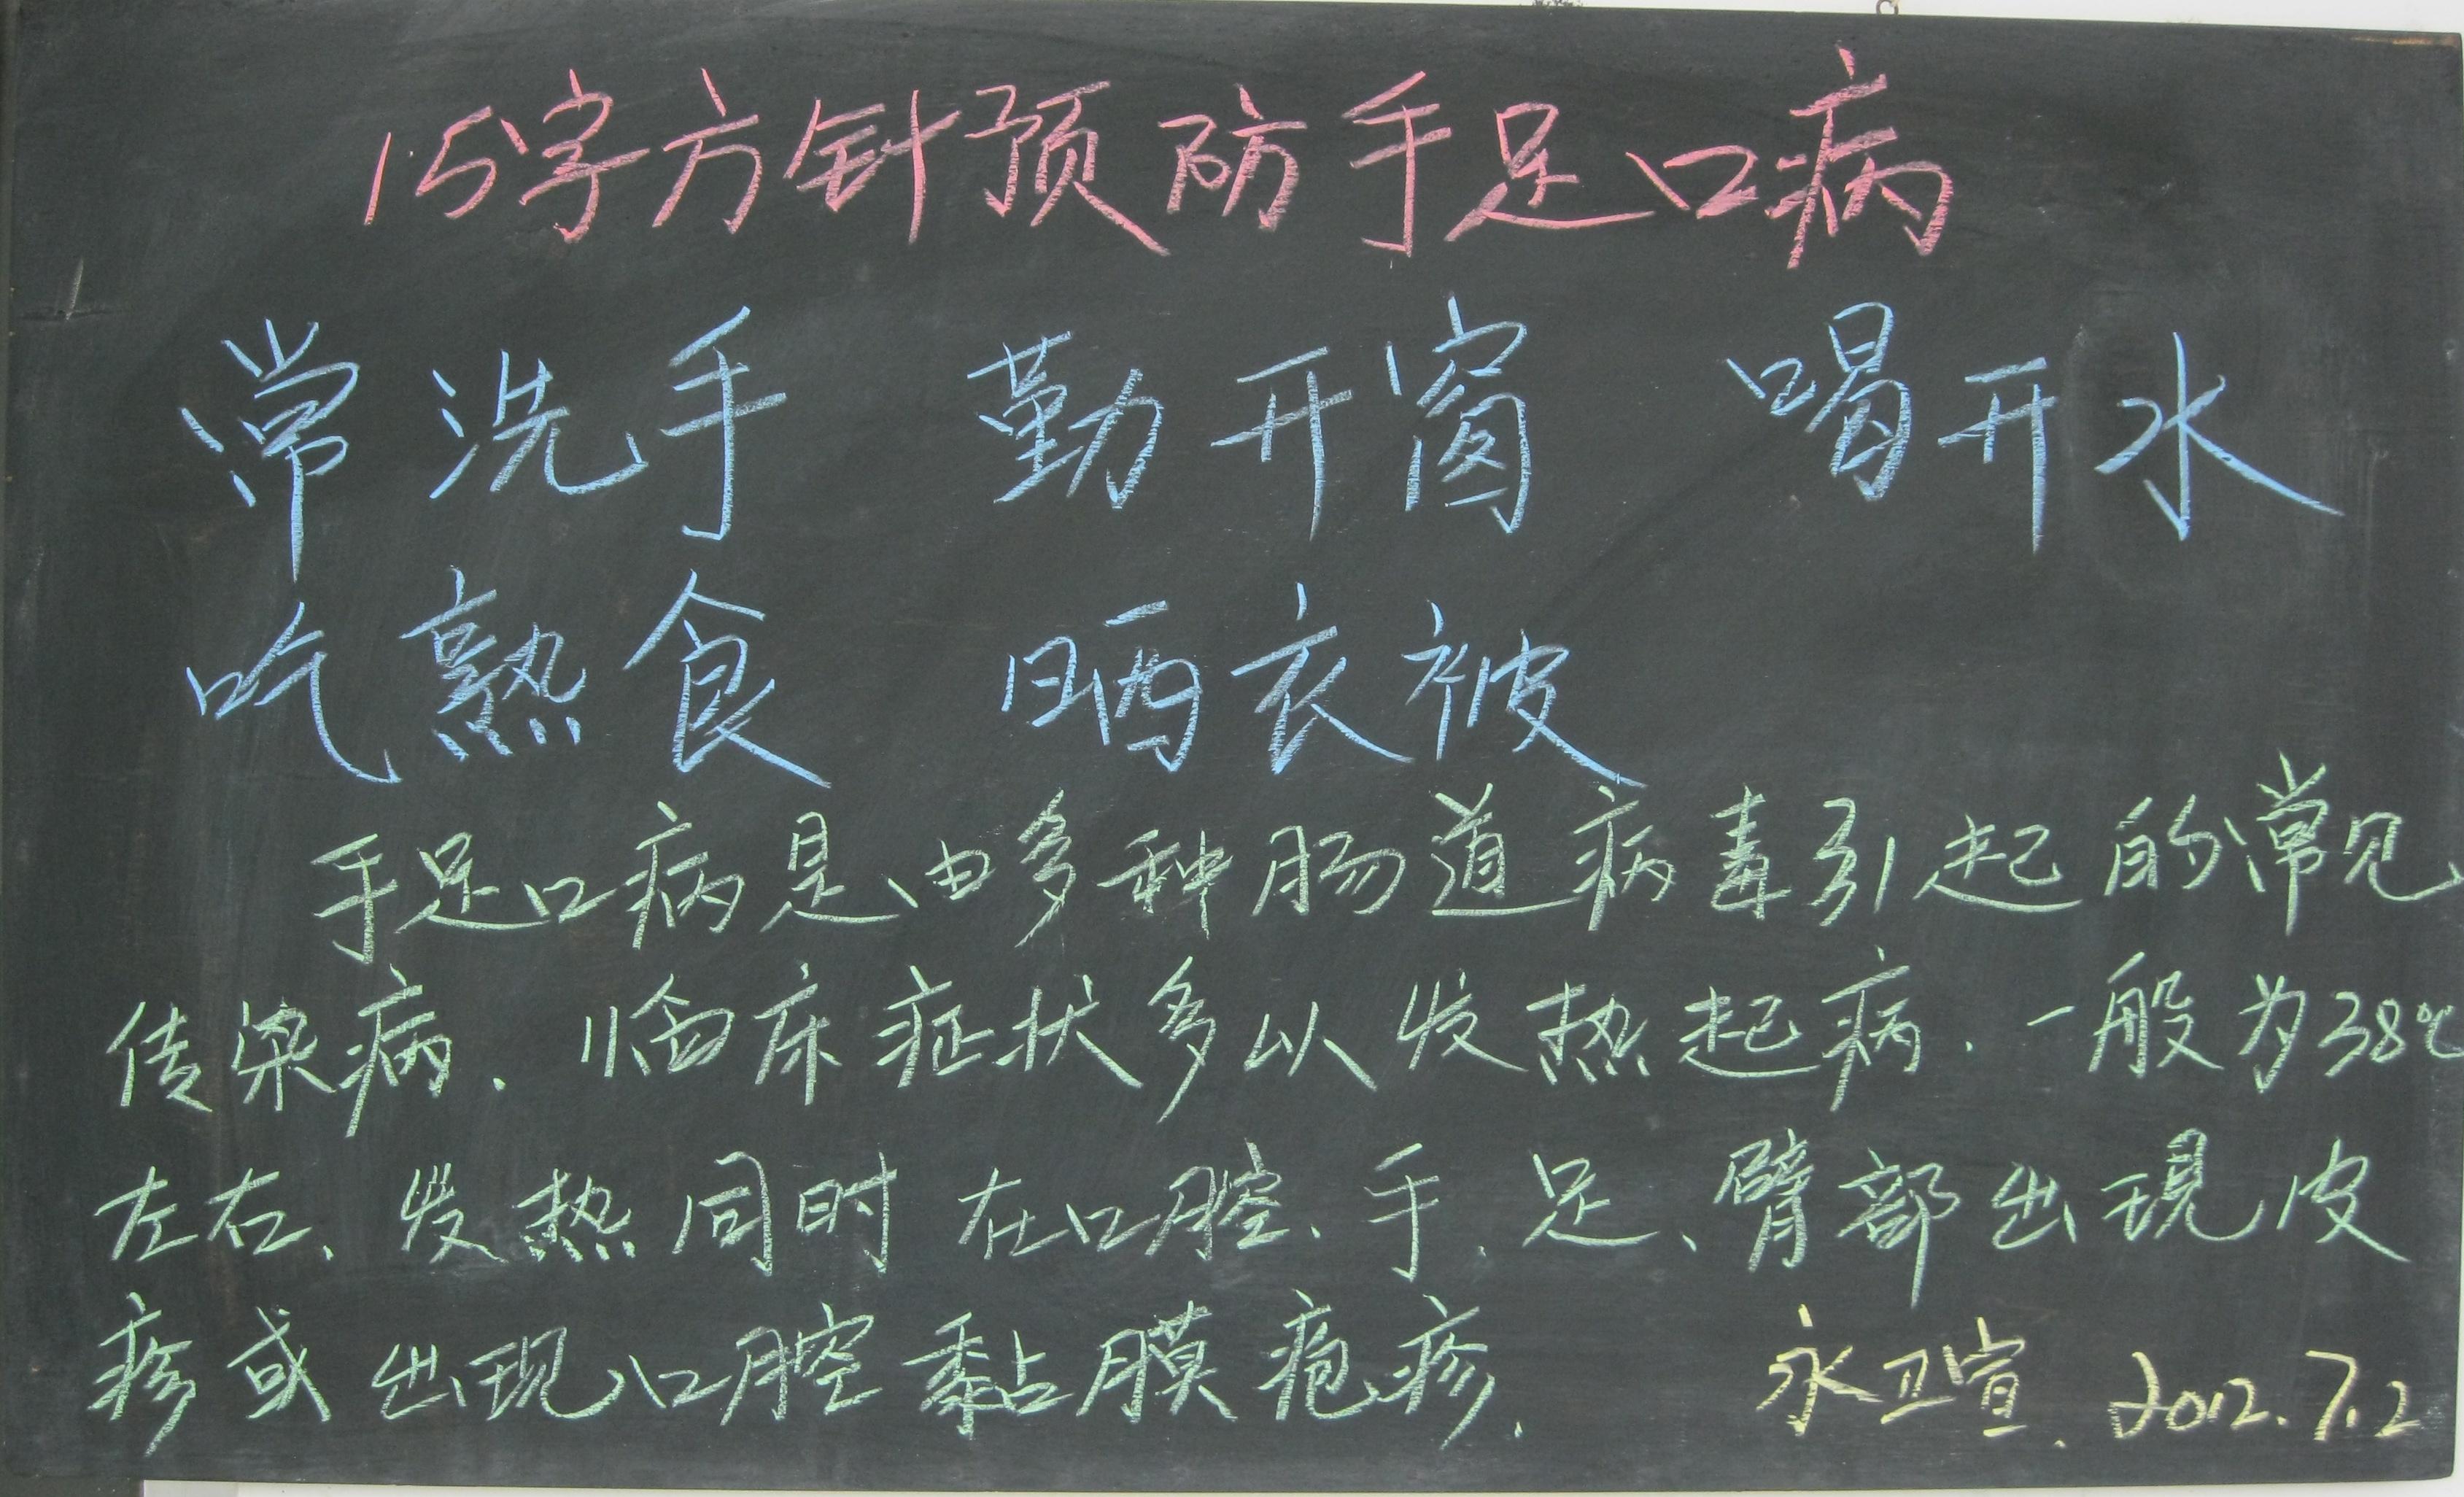 15字方针预防手足口病
常洗手 勤开窗 喝开水
吃熟食 晒衣被
手足口病是由多种肠道病毒引起的常见
传染病.临床症状多以发热起病.一般为38℃
左右、发热同时在口腔、手、足、臂部出现皮
疹或出现口腔黏膜疱疹.
永卫宣.2012.7.2